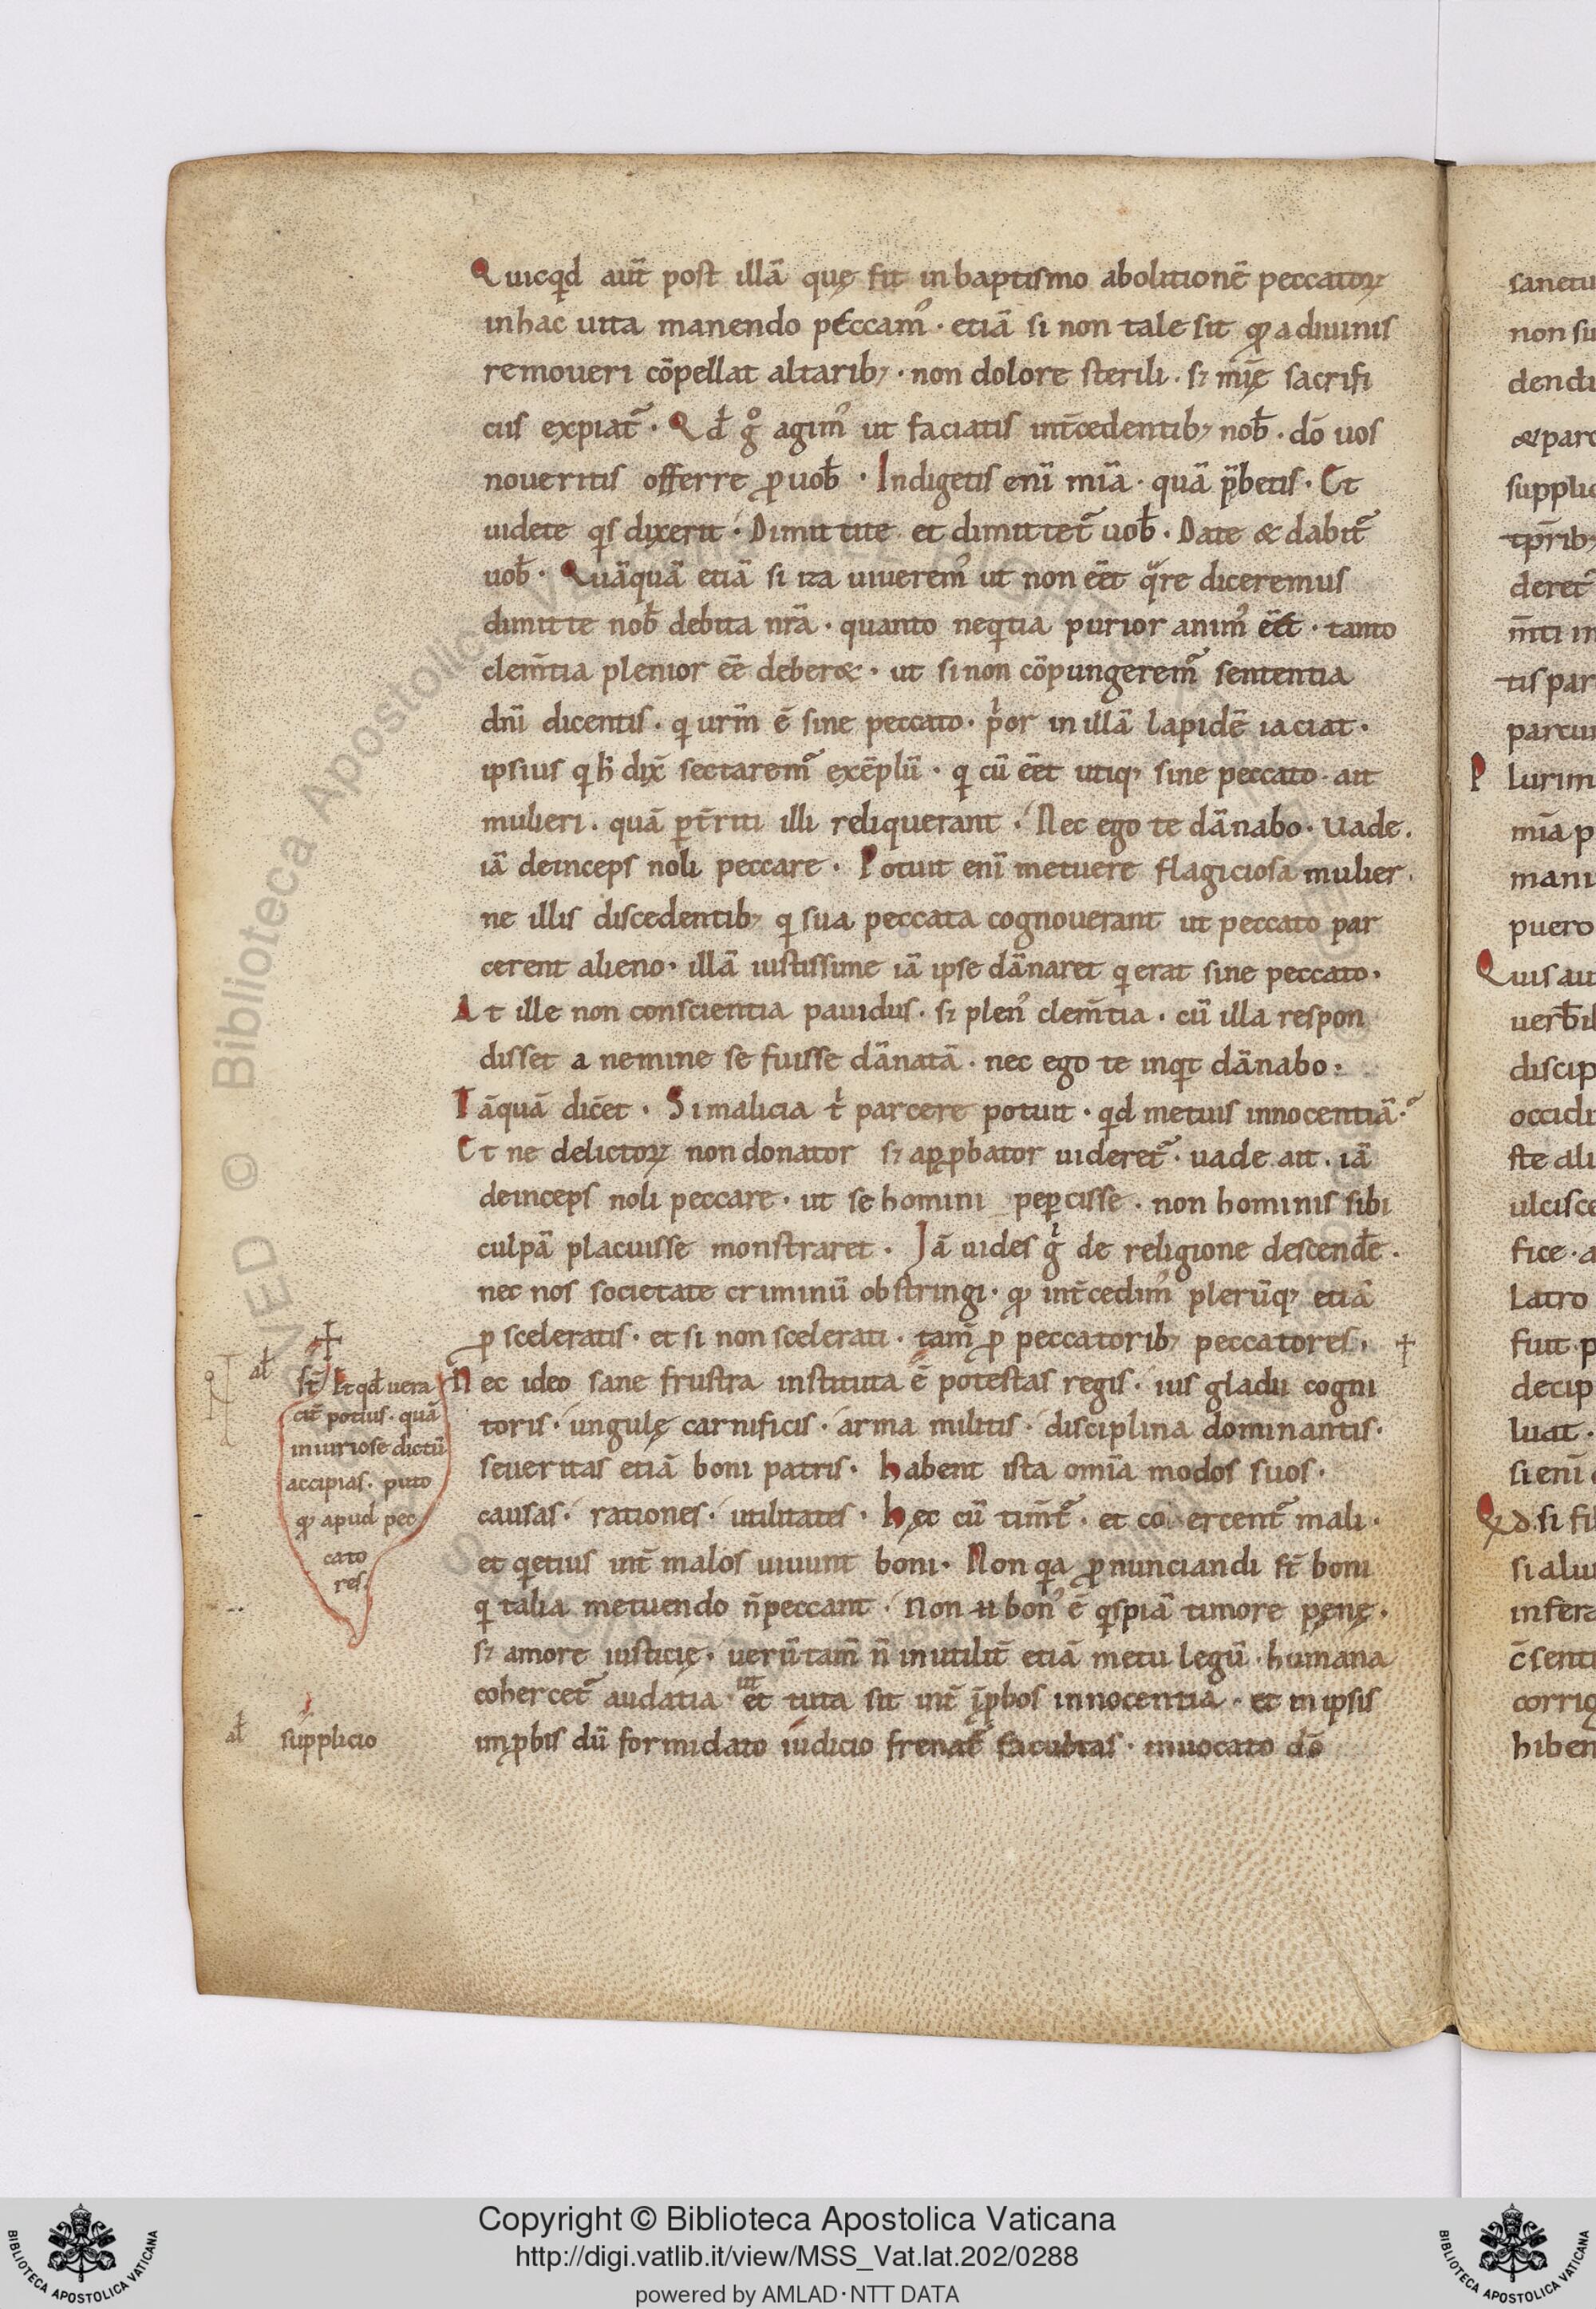 Quicqd aut̄ post illā quę fit in baptismo abolitionē peccatoꝝ
in hac uita manendo peccamꝰ · etiā si non tale sit qꝫ a diuinis
remoueri cōpellat altaribꝫ · non dolore sterili · sꝫ mīę sacrifi
ciis expiat᷑ · Qd̄ gͦ agimꝰ ut faciatis int̄cedentibꝫ nob̄ · dō uos
noueritis offerre ꝓ uob̄ · Indigetis enī mīa · quā p̄betis · Et
uidete qis dixerit · Dimittite et dimittet᷑ uob̄ · Date & dabit᷑
uob̄ · Quāquā etiā si ita uiueremꝰ ut non eēt qare diceremus
dimitte nob̄ debita nr̄a · quanto neqitia purior animꝰ eēt · tanto
clem̄tia plenior eē deber& · ut si non cōpungerem᷑ sententia
dnī dicentis · qi urm̄ ē sine peccato · pior in illā lapidē iaciat ·
ipsius qi h̄ dix̄ sectarem᷑ exēplū · qi cū eēt utiqꝫ sine peccato · ait
mulieri · quā ꝑt̄riti illi reliquerant · Nec ego te dānabo · Uade ·
iā deinceps noli peccare · Potuit enī metuere flagiciosa mulier ·
ne illis discedentibꝫ qi sua peccata cognouerant ut peccato par
cerent alieno · illā iustissime iā ipse dānaret qi erat sine peccato ·
At ille non conscientia pauidus · sꝫ plenꝰ clem̄tia · cū illa respon
disset a nemine se fuisse dānatā · nec ego te inqit dānabo ·
Tāquā dic̄et · Si malicia ti parcere potuit · qid metuis innocentiā ·
Et ne delictoꝝ non donator sꝫ apꝓbator uideret᷑ · uade ait · iā
deinceps noli peccare · ut se homini peꝑcisse · non hominis sibi
culpā placuisse monstraret · Iā uides gi de religione descend̄e ·
nec nos societate criminū obstringi · qꝫ int̄cedimꝰ plerūqꝫ etiā
ꝓ sceleratis · et si non scelerati · tam̄ ꝓ peccatoribꝫ peccatores · +
Nec ideo sane frustra instituta ē potestas regis · ius gladii cogni
toris · ungulę carnificis · arma militis · disciplina dominantis ·
seueritas etiā boni patris · habent ista omīa modos suos ·
causas · rationes · utilitates · hęc cū tim̄t᷑ · et co ercent᷑ mali ·
et qietius int̄ malos uiuunt boni · Non qia ꝓnunciandi st̄ boni
qi talia metuendo n̄ peccant · Non n̄ bonꝰ ē qispiā timore pęnę ·
sꝫ amore iusticię · uerū tam̄ n̄ inutilit̄ etiā metu legū humana
cohercet᷑ audatia · ut et tuta sit int̄ īꝓbos innocentia · et in ipsis
imꝓbis dū formidato iudicio frenat᷑ facultas · inuocato dō
+
al̄ st̄ / Et qd̄ uera
cit̄ potius · quā
iniuriose dictū
accipias · puto
qꝫ apud pec
cato
res ·
al̄ supplicio
sanctu
non su
dendi
& parc
supplic
tp̄ribꝫ
deret᷑
m̄ti in
tis par
parcu
Plurim
mīa p
mani
puero
Quis au
uerb̄il
discip
occidi
ste ali
ulcisce
fice · a
Latro
fuit p
decip
luat ·
si enī
Qd si fi
si aliu
infera
c̄senti
corrig
hiben
Copyright © Biblioteca Apostolica Vaticana
http://digi.vatlib.it/view/MSS_Vat.lat.202/0288
powered by AMLAD·NTT DATA